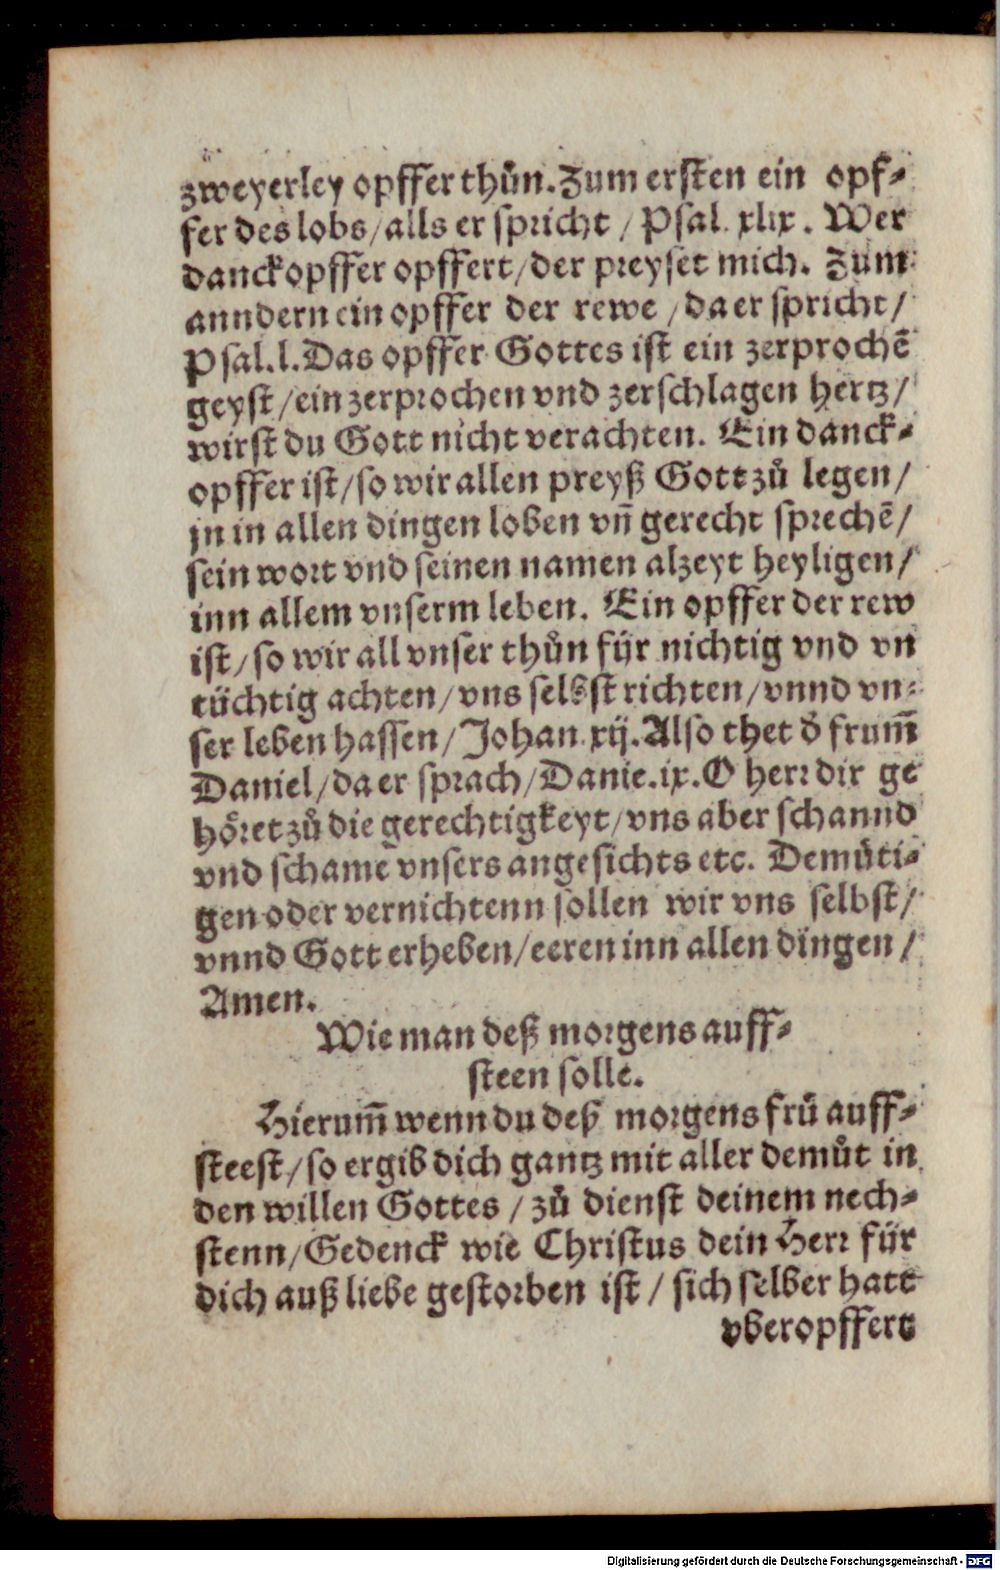 zweyerley opffer thůn. Zum ersten ein opf-
fer des lobs/ alls er spricht/ Psal. xlix. Wer
danckopffer opffert/ der preyset mich. Zum
anndern ein opffer der rewe/ da er spricht/
Psal. l. Das opffer Gottes ist ein zerprochē
geyst/ ein zerprochen vnd zerschlagen hertz/
wirst du Gott nicht verachten. Ein danck-
opffer ist/ so wir allen preyß Gott zů legen/
jn in allen dingen loben vñ gerecht sprechē/
sein wort vnd seinen namen alzeyt heyligen/
inn allem vnserm leben. Ein opffer der rew
ist/ so wir all vnser thůn für nichtig vnd vn
tüchtig achten/ vns selbst richten/ vnnd vn-
ser leben hassen/ Johan. xij. Also thet d̕ frum̄
Daniel/ da er sprach/ Danie. ix. O herr dir ge
höret zů die gerechtigkeyt/ vns aber schannd
vnd schame vnsers angesichts etc. Demůti-
gen oder vernichtenn sollen wir vns selbst/
vnnd Gott erheben/ eeren inn allen dingen/
Amen.
Wie man deß morgens auff-
steen solle.
Hierum̄ wenn du deß morgens frů auff-
steest/ so ergib dich gantz mit aller demůt in
den willen Gottes/ zů dienst deinem nech-
stenn/ Gedenck wie Christus dein Herr für
dich auß liebe gestorben ist/ sich selber hatt
vberopffert
Digitalisierung gefördert durch die Deutsche Forschungsgemeinschaft - DFG